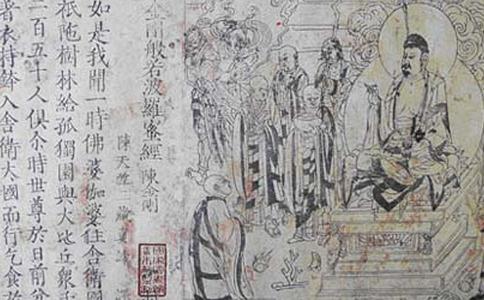 金剛般若波羅蜜經 陳金剛
陳天竺三藏真諦
如是我聞一時佛婆伽婆住舍衛國
祇陁樹林給孤獨園與大比丘衆千
二百五十人俱尒時世尊於日前分
著衣持鉢入舍衛大國而行乞食於